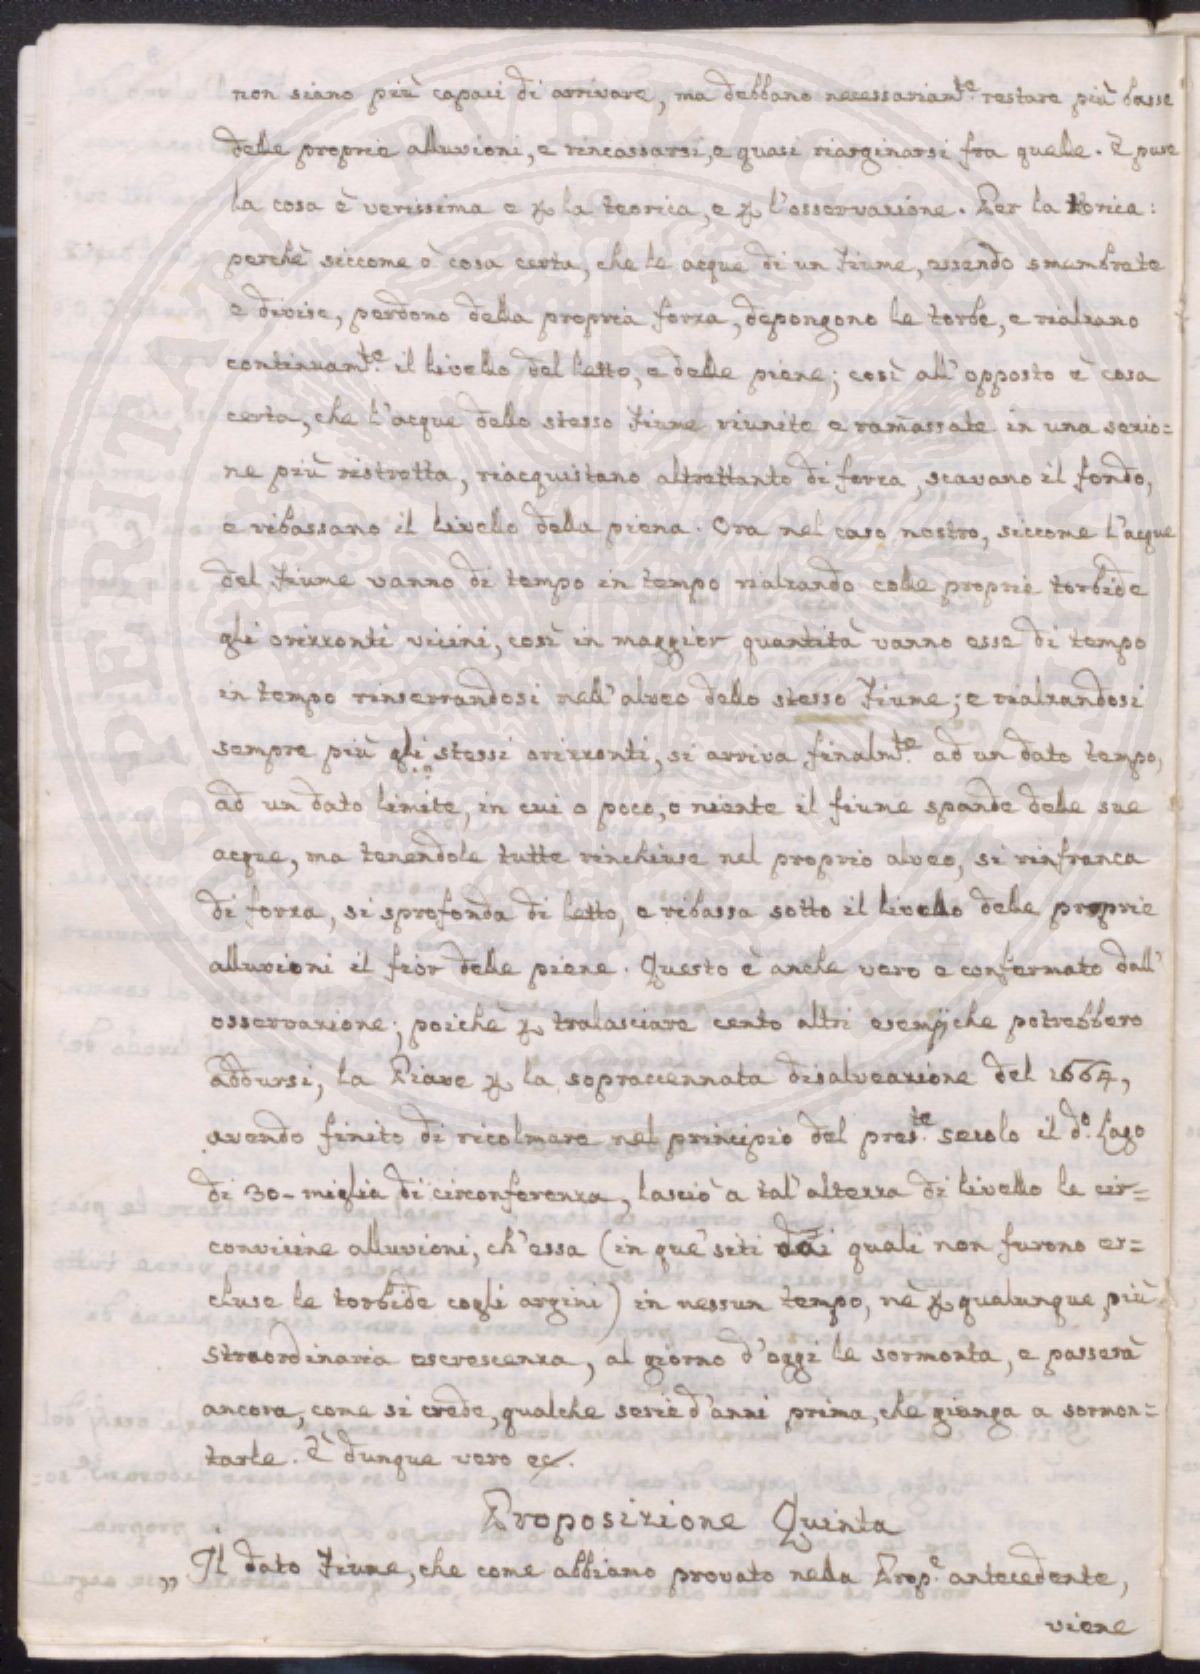 non siano più capaci di arrivare, ma debbano necessariam.te restare più basse
delle proprie alluvioni, e rincassarsi, e quasi riarginarsi fra quelle. È pure
la cosa è verissima e ꝑ la teorica, e ꝑ l'osservazione. Per la torica:
perchè siccome è cosa certa, che le acque di un Fiume, essendo smembrate
e divise, perdono della propria forza, depongono le torbe, e rialzano
continuam.te il livello del letto, e delle piene; così all'opposto è cosa
certa, che l'acque dello stesso Fiume riunite e ramassate in una sezio=
ne più ristrotta, riacquistano altrettanto di forza, scavano il fondo,
e ribassano il livello della piena. Ora nel caso nostro, siccome l'acque
del Fiume vanno di tempo in tempo rialzando colle proprie torbide
gli orizzonti vicini, così in maggior quantità vanno esse di tempo
in tempo rinserrandosi nell'alveo dello stesso Fiume; e rialzandosi
sempre più gli stessi orizzonti, si arriva finalm.te ad un dato tempo,
ad un dato limite, in cui o poco, o niente il fiume spande delle sue
acque, ma tenendole tutte rinchiuse nel proprio alveo, si rinfranca
di forza, si sprofonda di letto, e ribassa sotto il livello delle proprie
alluvioni il fior delle piene. Questo è anche vero e confermato dall'
osservazione; poichè ꝑ tralasciare cento altri esempj, che potrebbero
addursi, la Piave ꝑ la sopraccennata disalveazione del 1664,
avendo finito di ricolmare nel principio del pres.te secolo il d.o Lago
di 30 - miglia di circonferenza, lasciò a tal'altezza di livello le cir=
convicine alluvioni, ch'essa (in que' siti dai quali non furono es=
cluse le torbide cogli argini) in nessun tempo, nè ꝑ qualunque più
straordinaria escrescenza, al giorno d'oggi le sormonta, e passerà
ancora, come si crede, qualche serie d'anni prima, che giunga a sormon=
tarle. È dunque vero ec.
Proposizione Quinta
„ Il dato Fiume, che come abbiamo provato nella Prop.e antecedente,
viene